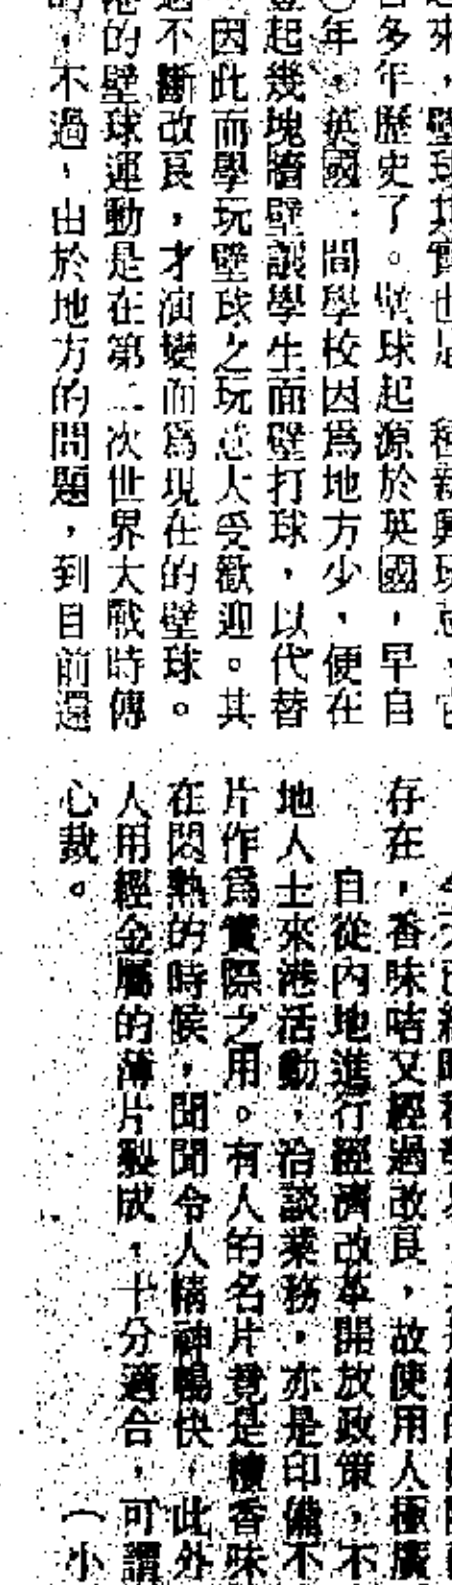 來，壁球其實也是一種新興玩意，它
多年歷史了。壁球起源於英國，早自
〇年，英國一間學校因爲地方少，便在
起幾塊牆壁讓學生面壁打球，以代替
因此而學玩壁球之玩意大受歡迎。其
過不斷改良，才演變而爲現在的壁球。
港的壁球運動是在第二次世界大戰時傳
的，不過，由於地方的問題，到目前還
存在，香味咭又經過改良，故使用人極廣
自從內地進行經濟改革開放政策，不
地人士來港活動，洽談業務，亦是印備不
片作爲實際之用。有人的名片竟是檀香味
在悶熱的時候，聞聞令人精神暢快，此外
人用經金屬的薄片製成，十分適合，可謂
心裁。（小